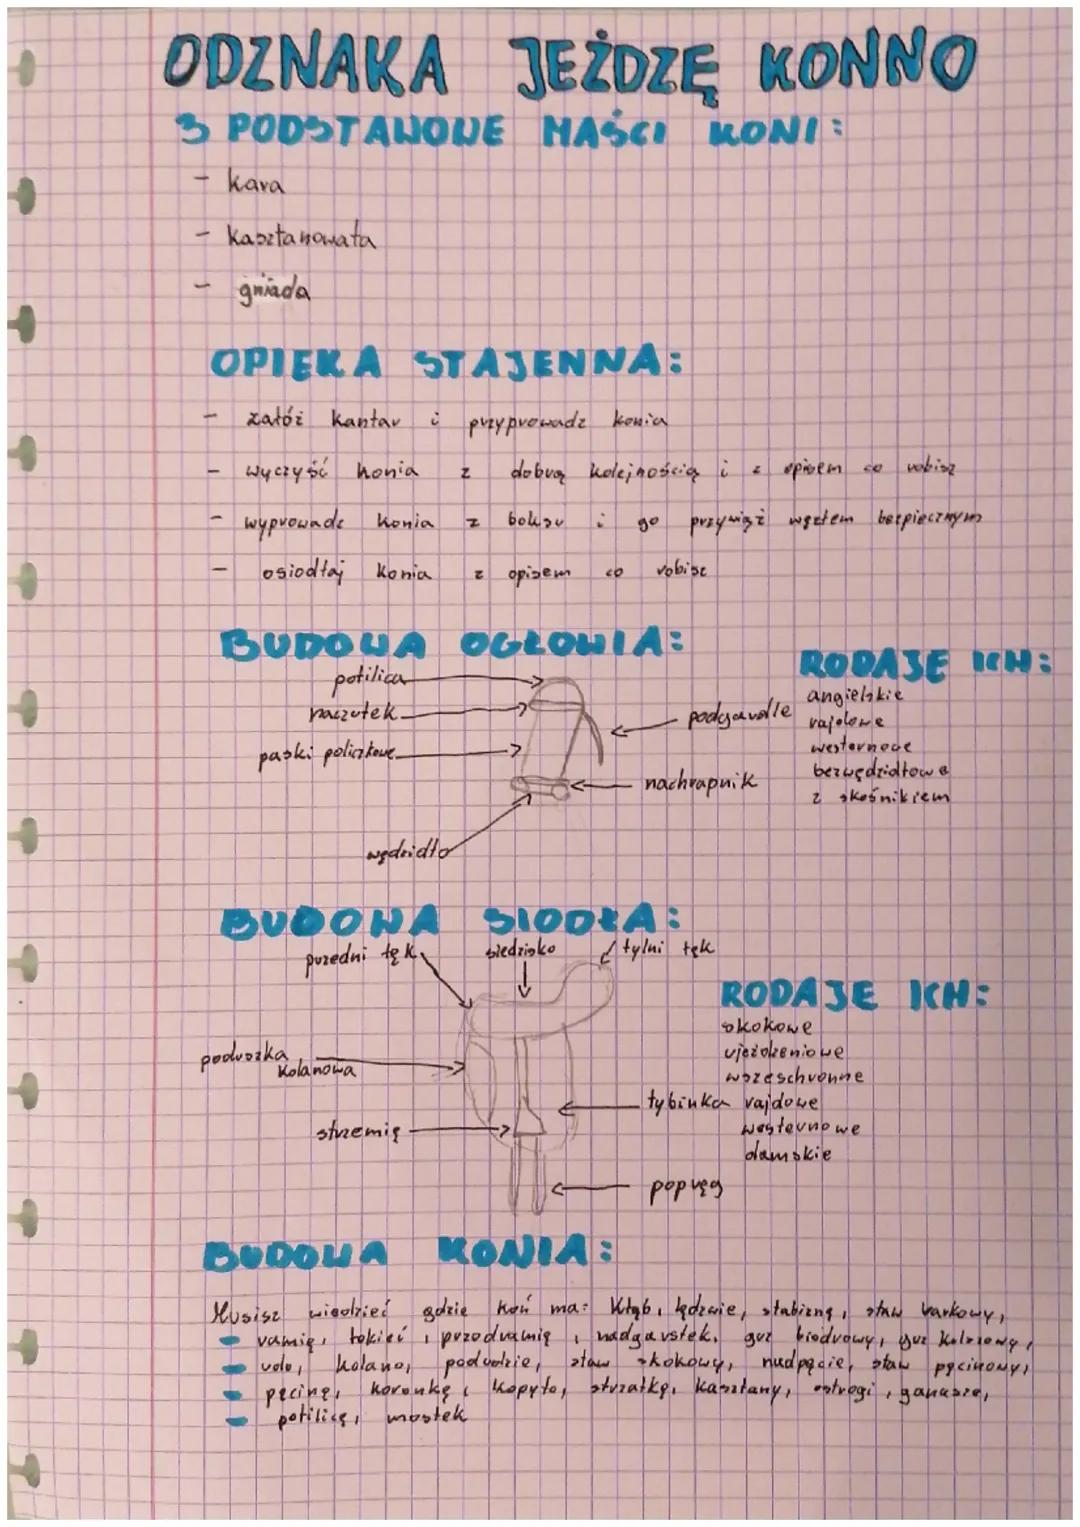 ODZNAKA JEŻDŻĘ KONNO
3 PODSTAWOWE MAŚCI KONI:
- kara
- kasztanowata
- gniada
OPIEKA STAJENNA:
- załóż kantar i przyprowadz konia
- wyczyść konia z dobrą kolejnością i z opisem co robisz
- wyprowadz konia z boksu i go przywiąż węzłem bezpiecznym
- osiodłaj konia z opisem co robisz
BUDOWA OGŁOWIA:
potilica
naczółek
paski policzkowe
wędzidło
podgardle
nachrapnik
RODAJE ICH:
angielskie
rajdowe
westernowe
bezwędzidłowe
z skośnikiem
BUDOWA SIODŁA:
przedni łęk
siedzisko
tylni łęk
poduszka kolanowa
strzemię
tybinka
popręg
RODAJE ICH:
skokowe
ujeżdżeniowe
wszeschronne
rajdowe
westernowe
damskie
BUDOWA KONIA:
Musisz wiedzieć gdzie koń ma: Kłąb, lędzwie, słabiznę, staw barkowy,
ramię, łokieć, przodramię, nadgarstek, guz biodrowy, guz kulszowy,
udo, kolano, podudzie, staw skokowy, nadpęcie, staw pęcinowy,
pęcinę, koronkę, kopyto, strzałkę, kasztany, ostrogi, ganasze,
potilicę, mostek